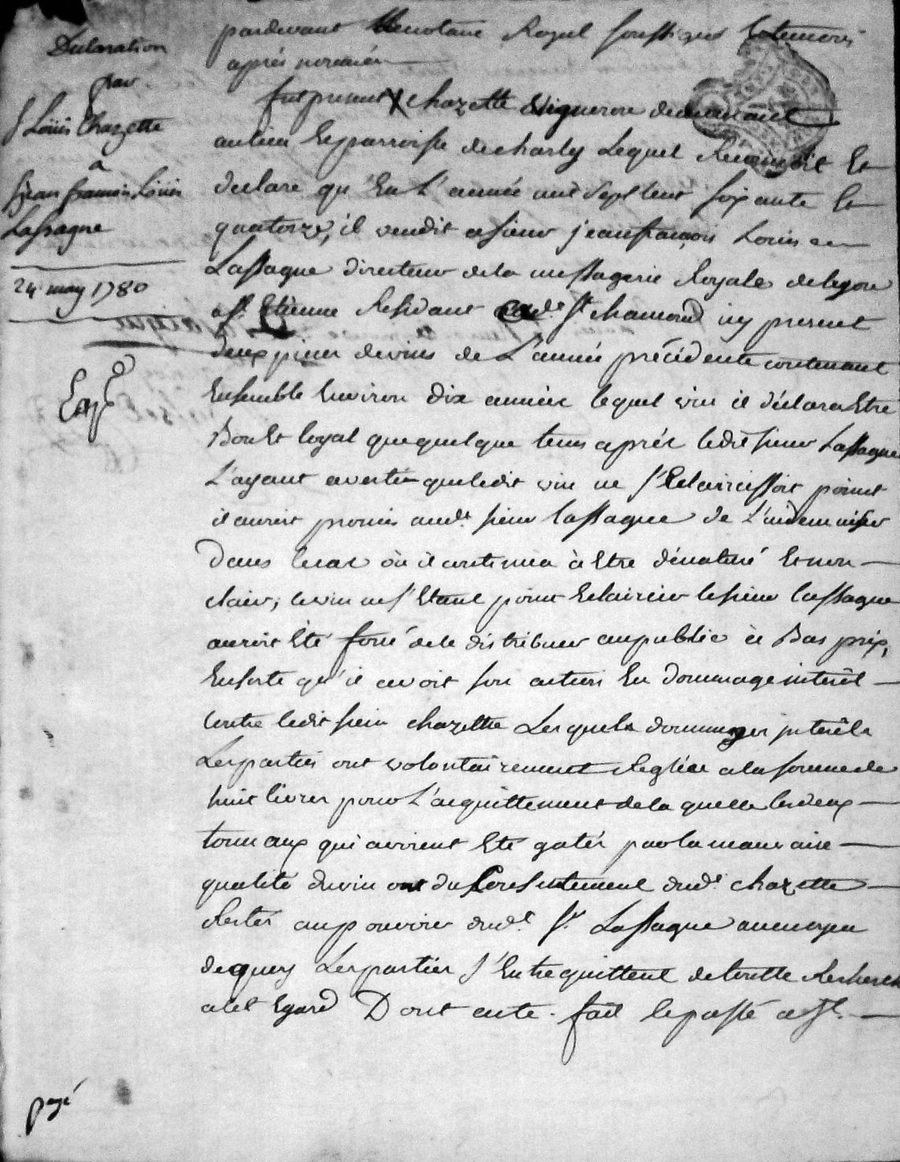 Declaration
par
S Louis Chazette
a
Sr jean francois Louis
Lassagne
24 may 1780
Expé
payé
pardevant le notaire Royal soussigné et temoins
après nommés
fut present X chazette vigneron demeurant
au lieu et parroisse de charly Lequel Reconnoit Et
declare qu'En L'année mil sept cent soixante Et
quatorze, il vendit a sieur jean francois Louis
Lassagne directeur de la messagerie Royale de lyon
a st Etienne Residant audt St chamond icy present
deux pieces de vins de L'année précédente contenant
Ensemble Environ dix années lequel vin il déclara Etre
Bon Et loyal que quelque tems après ledit sieur Lassagne
L'ayant averti que ledit vin ne s'Eclaircissoit point
il auroit promis audt sieur lassagne de L'indemniser
Dans le cas où il continua à Etre dénaturé Et non
clair; le vin ne s'Etant point Eclairci le sieur lassagne
auroit Eté forcé de le distribuer au public à Bas prix,
Ensorte qu'il avoit son action En dommage interêt
contre ledit sieur chazette Lesquels dommages interêts
Les parties ont volontairement Reglées a la somme de
huit livres pour L'acquittement de la quelle les deux
tonneaux qui avoient Eté gatés par la mauvaise
qualité du vin ont du consentement dudt chazette
Restés au pouvoir dudt Sr Lassagne au moyen
de quoy Les parties s'Entrequittent de toutte Recherche
a cet Egard Dont acte. fait et passé a St